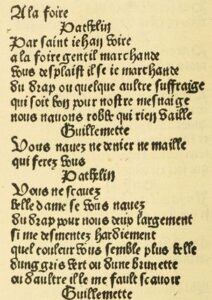 A la foire
Pathelin
Par saint iehan voire
a la foire gentil marchande
vous desplaist il se ie marchande
du drap ou quelque aultre suffraige
qui soit bon pour nostre mesnaige
nous nauons robbe qui rien vaille
Guillemette
Vous nauez ne denier ne maille
qui ferez vous
Pathelin
Vous ne scauez
belle dame se vous nauez
du drap pour nous deux largement
si me desmentez hardiement
quel couleur vous semble plus belle
dung gris vert ou dune brunette
ou daultre il le me fault scauoir
Guillemette